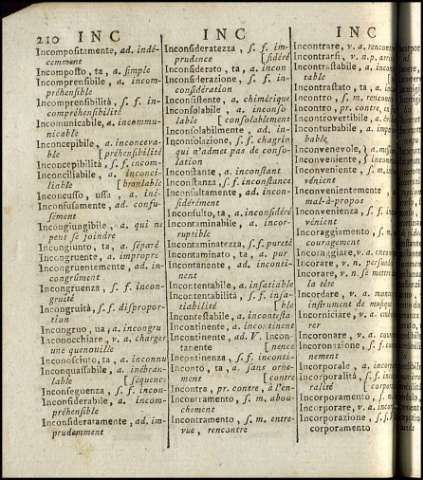 210 INC INC INC
Incompositamente, ad. indé-
cemment
Incomposto, ta, a. simple
Incomprensibile, a. incom-
préhensible
Incomprensibilità, s. f. in-
compréhensibilité
Incomunicabile, a. incommu-
nicable
Inconcepibile, a. inconceva-
ble [préhensibilité
Inconcepibilità, s. f. incom-
Inconciliabile, a. inconci-
liable [branlable
Inconcusso, ussa, a. iné-
Inconfusamente, ad. confu-
sément
Incongiungibile, a. qui ne
peut se joindre
Incongiunto, ta, a. séparé
Incongruente, a. impropre
Incongruentemente, ad. in-
congrûment
Incongruenza, s. f. incon-
gruité
Incongruità, s. f. dispropor-
tion
Incongruo, ua, a. incongru
Inconocchiare, v. a. charger
une quenouille
Inconosciuto, ta, a. inconnu
Inconquassabile, a. inébran-
lable [séquence
Inconseguenza, s. f. incon-
Inconsiderabile, a. incom-
préhensible
Inconsideratamente, ad. im-
prudemment
Inconsideratezza, s. f. im-
prudence [sidéré
Inconsiderato, ta, a. incon
Inconsiderazione, s. f. in-
considération
Inconsistente, a. chimérique
Inconsolabile, a. inconso-
lable [consolablement
Inconsolabilmente, ad. in-
Inconsolazione, s. f. chagrin
qui n'admet pas de conso-
lation
Inconstante, a. inconstant
Inconstanza, s. f. inconstance
Inconsultamente, ad. incon-
sidérément
Inconsulto, ta, a. inconsidéré
Incontaminabile, a. incor-
ruptible
Incontaminatezza, s. f. pureté
Incontaminato, ta, a. pur
Incontanente, ad. inconti-
nent
Incontentabile, a. insatiable
Incontentabilità, s. f. insa-
tiabilité [ble
Incontestabile, a. incontesta-
Incontinente, a. incontinent
Incontinente, ad. V. Incon-
tanente [nence
Incontinenza, s. f. inconti-
Inconto, ta, a. sans orne-
ment [contre
Incontra, pr. contre, à l'en-
Incontramento, s. m. abou-
chement
Incontramento, s. m. entre-
vue, rencontre
Incontrare, v. a. rencont
Incontrarsi, v. a. p. arri
Incontrastabile, a. in
table
Incontrastato, ta, a. in
Incontro, s. m. rencont
Incontro, pr. contre,
Incontrovertibile, a. in
Inconturbabile, a. imper
bable
Inconvenevole, a.
Inconveniente, s. inco
Inconveniente, s. m.
vénient
Inconvenientemente
mal-à-propos
Inconvenienza, s. f. in
vénient
Incoraggiamento, s. m.
couragement
Incoraggiare, v. a. enco
Incorare, v. n. persuad
Incorare, v. n. se mettre
la tête
Incordare, v. a. mont
instrument de musique
Incorniciare, v. a. enca
rer
Incoronare, v. a. couronn
Incoronazione, s. f. couron
nement
Incorporale, a. incorpo
Incorporalità, s. f. incor
ralité
Incorporamento, s. m.
Incorporare, v. a. incor
Incorporazione, s. f.
corporamento